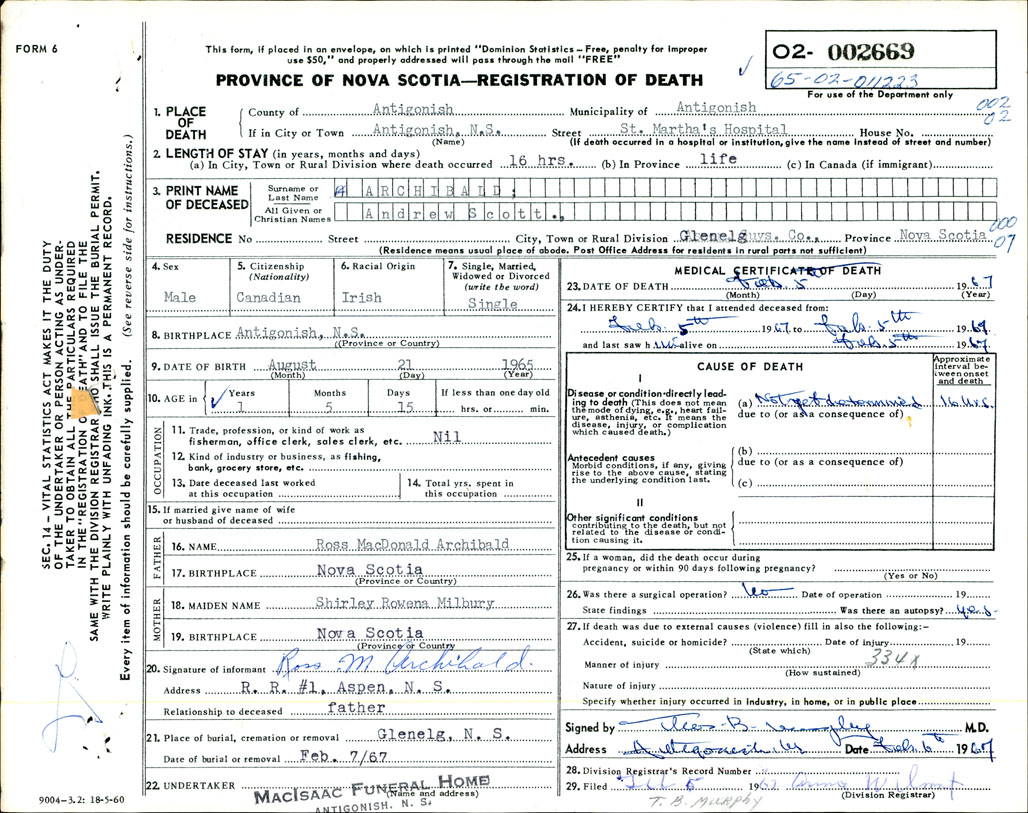 FORM 6
This form, if placed in an envelope, on which is printed "Dominion Statistics – Free, penalty for improper
use $50," and properly addressed will pass through the mail "FREE"
PROVINCE OF NOVA SCOTIA—REGISTRATION OF DEATH
O2- 002669
65-02-011223
For use of the Department only
002
02
1. PLACE OF DEATH
County of Antigonish Municipality of Antigonish
If in City or Town Antigonish, N.S. Street St. Martha's Hospital House No.
(Name) (If death occurred in a hospital or institution, give the name instead of street and number)
2. LENGTH OF STAY (in years, months and days)
(a) In City, Town or Rural Division where death occurred 16 hrs. (b) In Province life (c) In Canada (if immigrant)
3. PRINT NAME OF DECEASED
Surname or Last Name A ARCHIBALD,
All Given or Christian Names Andrew Scott.,
000
07
RESIDENCE No Street City, Town or Rural Division Glenelg Guys. Co., Province Nova Scotia
(Residence means usual place of abode. Post Office Address for residents in rural parts not sufficient)
4. Sex
Male
5. Citizenship (Nationality)
Canadian
6. Racial Origin
Irish
7. Single, Married, Widowed or Divorced (write the word)
Single
8. BIRTHPLACE Antigonish, N.S.
(Province or Country)
9. DATE OF BIRTH August 21 1965
(Month) (Day) (Year)
10. AGE in Years Months Days If less than one day old
1 5 15 hrs. or min.
OCCUPATION
11. Trade, profession, or kind of work as
fisherman, office clerk, sales clerk, etc. Nil
12. Kind of industry or business, as fishing,
bank, grocery store, etc.
13. Date deceased last worked
at this occupation
14. Total yrs. spent in
this occupation
15. If married give name of wife
or husband of deceased
FATHER
16. NAME Ross MacDonald Archibald
17. BIRTHPLACE Nova Scotia
(Province or Country)
MOTHER
18. MAIDEN NAME Shirley Rowena Milbury
19. BIRTHPLACE Nova Scotia
(Province or Country)
20. Signature of informant Ross M Archibald.
Address R. R. #1, Aspen, N. S.
Relationship to deceased father
21. Place of burial, cremation or removal Glenelg, N. S.
Date of burial or removal Feb. 7/67
22. UNDERTAKER MACISAAC FUNERAL HOME
(Name and address)
ANTIGONISH, N. S.
MEDICAL CERTIFICATE OF DEATH
23. DATE OF DEATH Feb. 5th 1967
(Month) (Day) (Year)
24. I HEREBY CERTIFY that I attended deceased from:
Feb. 5th 1967 to Feb. 5th 1967
and last saw him alive on Feb. 5th 1967
CAUSE OF DEATH
Approximate interval between onset and death
I
Disease or condition directly leading to death (This does not mean the mode of dying, e.g., heart failure, asthenia, etc. It means the disease, injury, or complication which caused death.)
(a) Not yet determined 16 hrs.
due to (or as a consequence of)
Antecedent causes
Morbid conditions, if any, giving rise to the above cause, stating the underlying condition last.
(b)
due to (or as a consequence of)
(c)
II
Other significant conditions
contributing to the death, but not related to the disease or condition causing it.
25. If a woman, did the death occur during
pregnancy or within 90 days following pregnancy?
(Yes or No)
26. Was there a surgical operation? No Date of operation 19
State findings Was there an autopsy? Yes
27. If death was due to external causes (violence) fill in also the following:–
Accident, suicide or homicide? Date of injury 19
(State which)
334X
Manner of injury
(How sustained)
Nature of injury
Specify whether injury occurred in industry, in home, or in public place
Signed by M.D.
Address Antigonish Date Feb. 6th 1967
28. Division Registrar's Record Number
29. Filed Feb 5 1967
(Division Registrar)
T. B. MURPHY
SEC. 14 – VITAL STATISTICS ACT MAKES IT THE DUTY
OF THE UNDERTAKER OR PERSON ACTING AS UNDER-
TAKER TO OBTAIN ALL THE PARTICULARS REQUIRED
IN THE "REGISTRATION OF DEATH" AND TO FILE THE
SAME WITH THE DIVISION REGISTRAR WHO SHALL ISSUE THE BURIAL PERMIT.
WRITE PLAINLY WITH UNFADING INK. THIS IS A PERMANENT RECORD.
Every item of information should be carefully supplied. (See reverse side for instructions.)
9004-3.2: 18-5-60